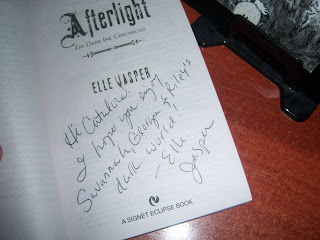 Afterlight
THE DARK INK CHRONICLES
ELLE JASPER
Hi Catalina!
I hope you enjoy
Savannah, Georgia & Riley's
dark world!
—Elle
Jasper
A SIGNET ECLIPSE BOOK